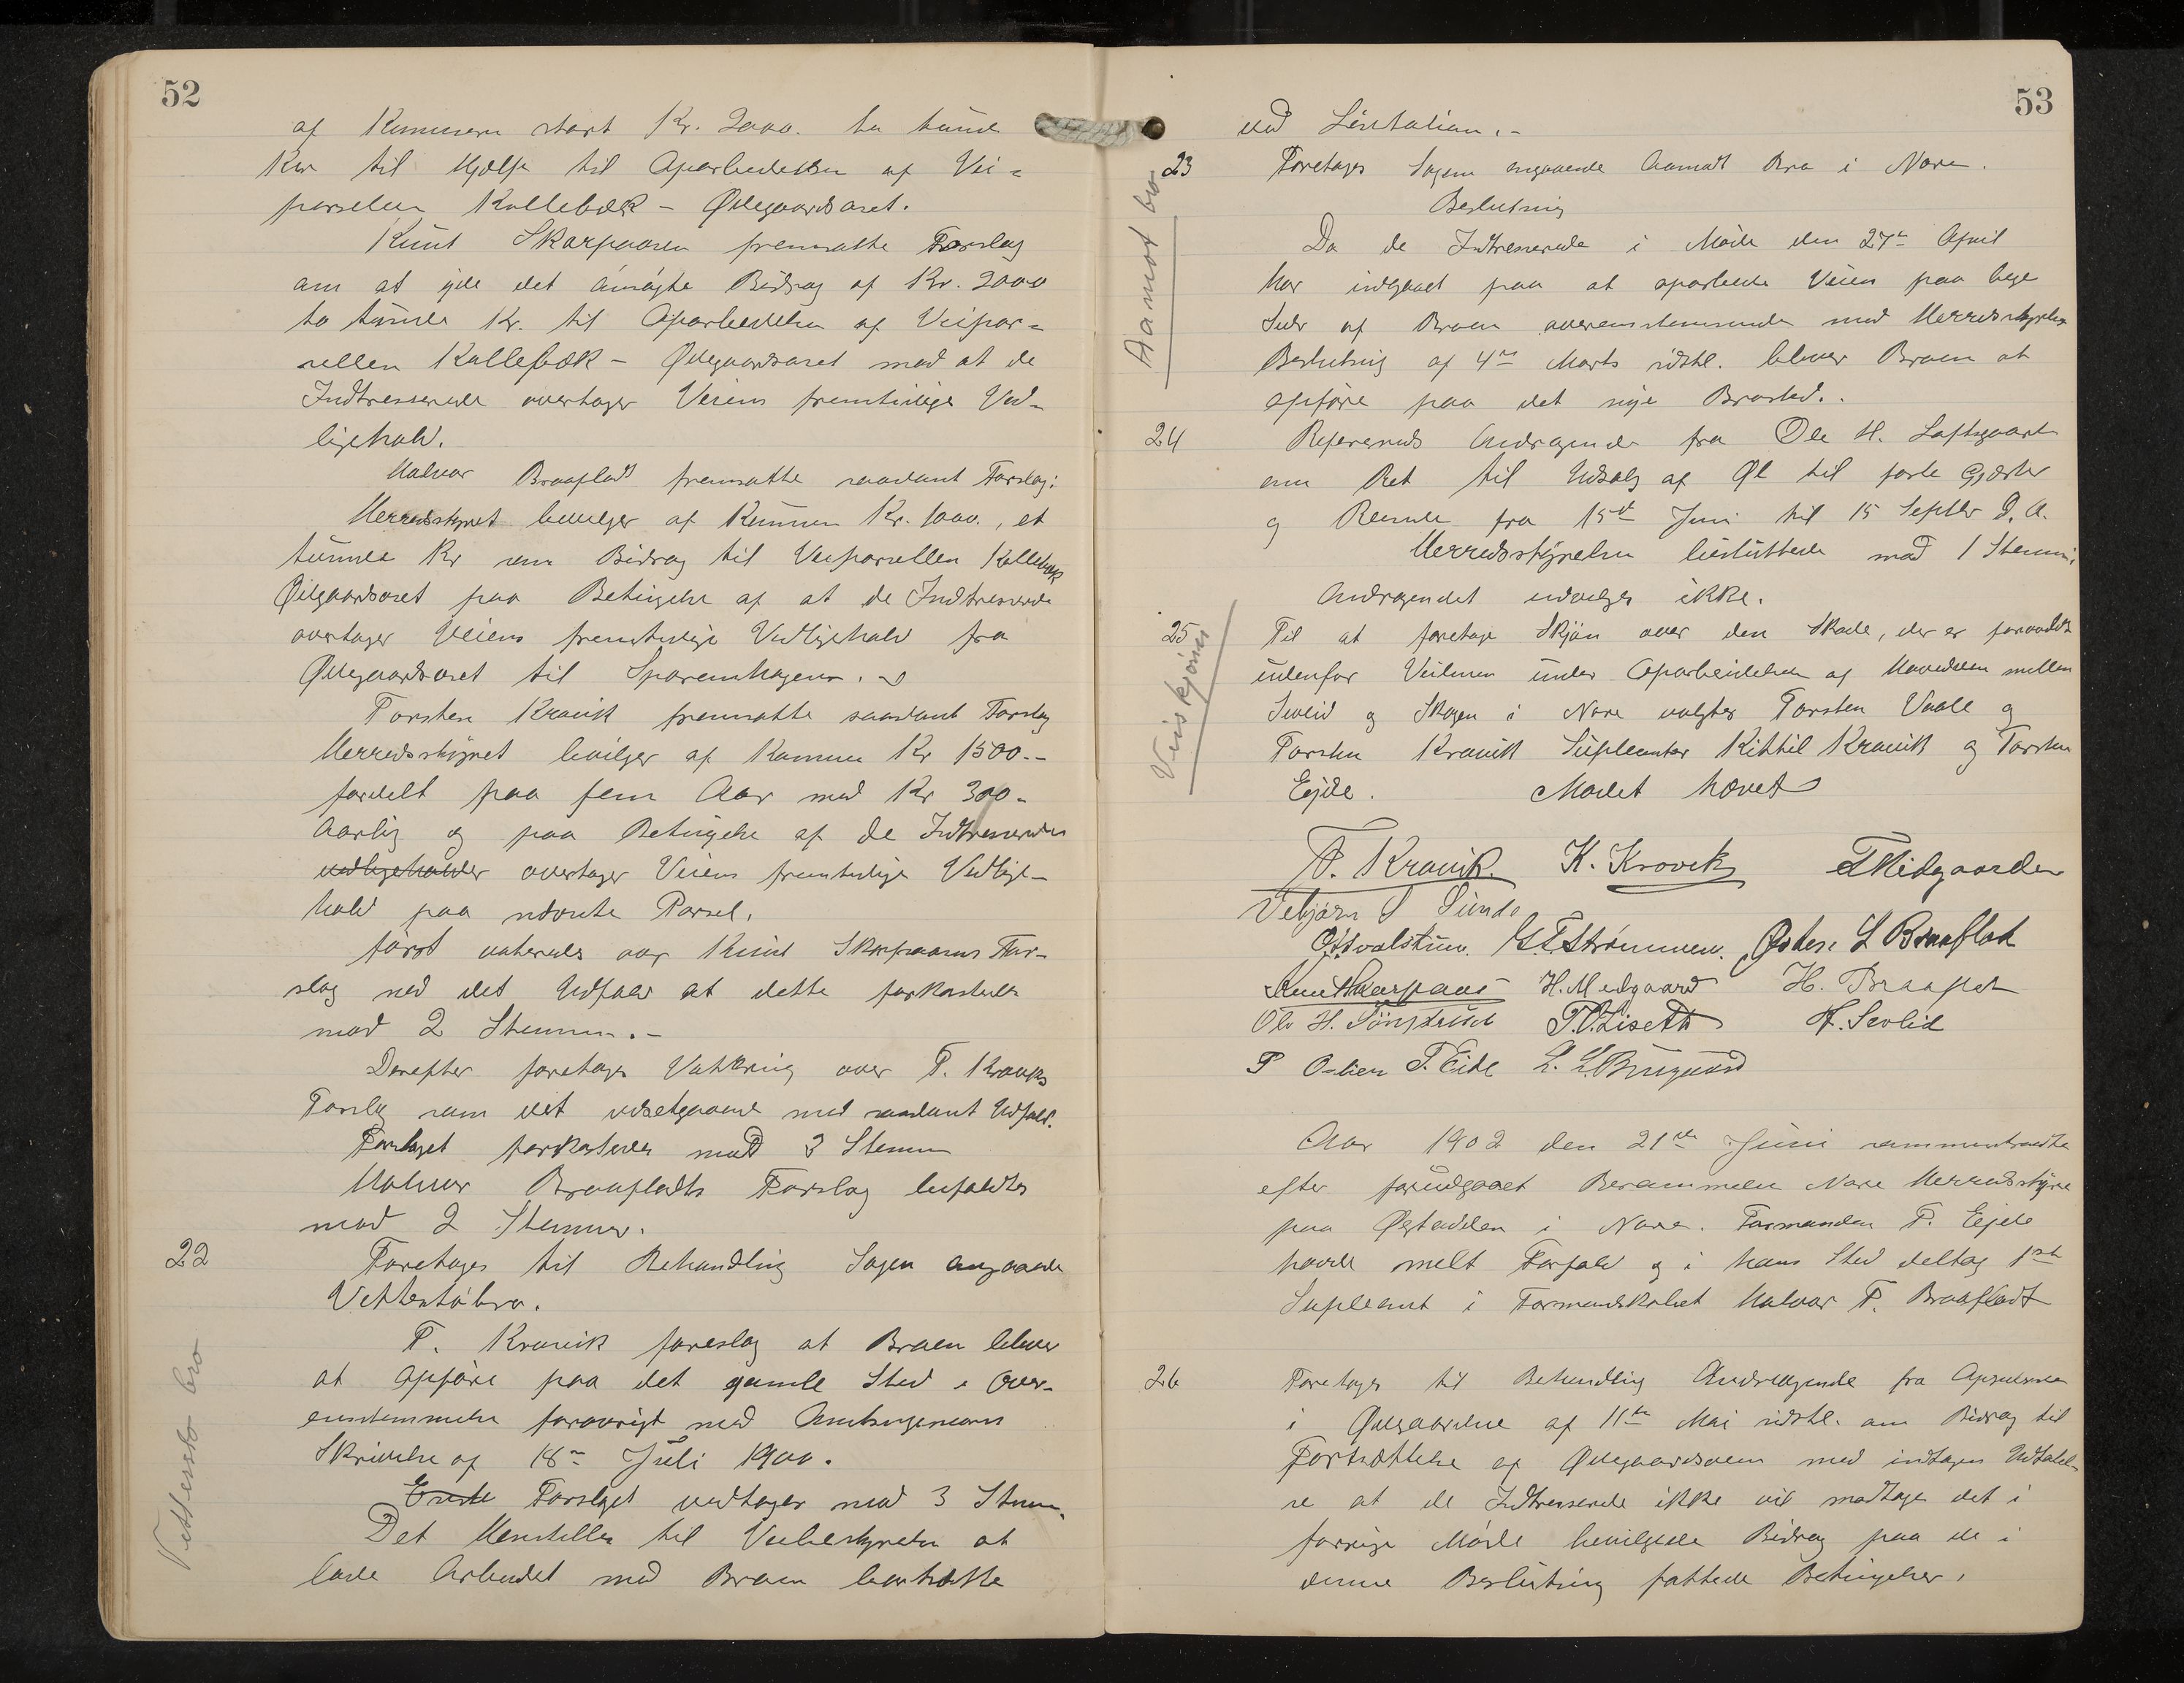 52
af Kommunen stort Kr. 2000. to tusinde
Kr til Hjælp til Oparbeidelsen af Vei=
parsellen Kallebæk - Ødegaardsaset.
Knut Skarpaasen fremsatte Forslag
om at yde det ansøgte Bidrag af Kr. 2000
to tusinde Kr. til Oparbeidelsen af Veipar=
sellen Kallebæk - Ødegaardsaset mod at de
Indtresserede overtager Veiens fremtidige Ved-
ligehold.
Halvor Braafladt fremsatte saadant Forslag:
Herredsstyret bevilger af Kommunen Kr. 1000., et
tusinde Kr som Bidrag til Veiparsellen Kallebæk
Ødegaardsaset paa Betingelse af at de Indtresserede
overtager Veiens fremtidige Vedligehold fra
Ødegaardsaset til
Torsten Kravik fremsatte saadant Forslag
Herredsstyret bevilger af Kommunen Kr 1500.-
fordelt paa fem Aar med Kr 300-
Aarlig og paa Betingelse af de Indtresserede
vedligeholder overtager Veiens fremtidige Vedlige-
hold paa nævnte Parsel.
først voteredes over Knut Skarpaasens For-
slag med det Udfald at dette forkastedes
mod 2 Stemmer.-
Derefter foretages Votering over T. Kraviks
Forslag som det videstgaaende med saadant Udfald.
Forslaget forkastedes mod 3 Stemmer
Halvor Braafladts Forslag bifaldtes
mod 2 Stemmer.
22
Foretages til Behandling Sagen angaaende
Vettestøbro.
T. Kravik foreslog at Broen bliver
at opføre paa det gamle Sted i Over-
ensstemmelse forøvrigt med Amtsingeniørens
Skrivelse af 18de Juli 1900.
Forslaget vedtages mod 3 Stemmer.
Det Henstilles til Veibestyrelsen at
lade Arbeidet med Broen bortsætte
Vettestø bro
53
ved Licitation.-
23
Foretages Sagen angaaende Aamodt Bro i Nore.
Beslutning
Da de Indtresserede i Møde den 27de April
har indgaaet paa at oparbeide Veien paa begge
Sider af Broen overensstemmende med Herredsstyrets
Beslutning af 4de Marts sidstl. bliver Broen at
opføre paa det nye Brosted..
Aamodt bro
24
Refereredes Andragende fra Ole H. Loftsgaard
om Ret til Udsalg af Øl til faste Gjæster
og Reisende fra 15de Juni til 15 Septbr d. A.
Herredsstyrelsen besluttede mod 1 Stemme,
Andragendet indvilges ikke.
25
Til at foretage Skjøn over den Skade, der er forvoldt
udenfor Veilinien under Oparbeidelsen af Hovedveien mellem
Sevlid og Skogen i Nore valgtes Torsten Vaale og
Torsten Kravik Supleanter Kittil Kravik og Torsten
Eide. Mødet hævet
Veiskjøner
T. Kravik. K. Kravik T Midgaarden
Vebjørn S Sundo
G. T. Strømmen. Østen L Braaflat
Knut Skarpaas H. Medgaard H. Braaflat
Ole H. T. O. Liseth H. Sevlid
P T. Eide
Aar 1902 den 21de Juni sammentraadte
efter forudgaaet Berammelse Nore Herredsstyre
paa Øgstadden i Nore. Formanden T. Eide
havde meldt Forfald og i hans Sted deltog 1ste
Supleant i Formandskabet Halvor T. Braafladt
26
Foretages til Behandling Andragende fra Opsidderne
i Ødegaardene af 11te Mai sidstl. om Bidrag til
Fortsættelse af Ødegaardsveien med indtagen Udtalel-
se at de Indtresserede ikke vil modtage det i
forrige Møde bevilgede Bidrag paa de i
denne Beslutning fattede Betingelser.